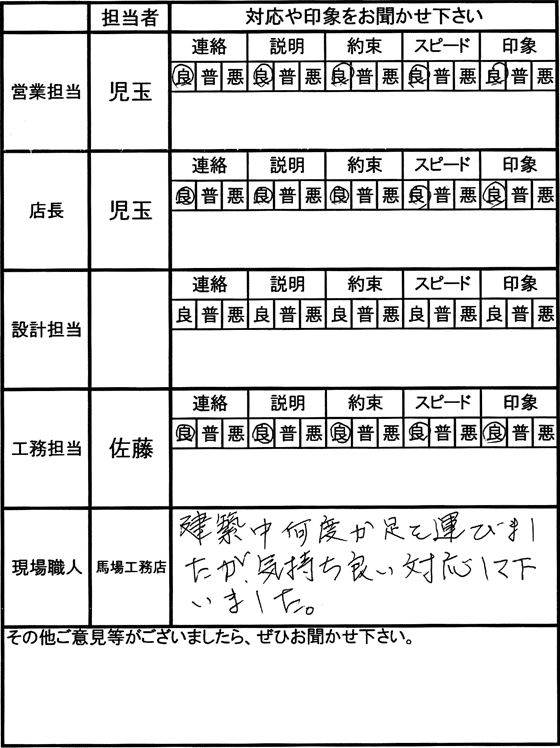 担当者 対応や印象をお聞かせ下さい
営業担当 児玉
連絡 説明 約束 スピード 印象
良 普 悪 良 普 悪 良 普 悪 良 普 悪 良 普 悪
店長 児玉
連絡 説明 約束 スピード 印象
良 普 悪 良 普 悪 良 普 悪 良 普 悪 良 普 悪
設計担当
連絡 説明 約束 スピード 印象
良 普 悪 良 普 悪 良 普 悪 良 普 悪 良 普 悪
工務担当 佐藤
連絡 説明 約束 スピード 印象
良 普 悪 良 普 悪 良 普 悪 良 普 悪 良 普 悪
現場職人 馬場工務店
建築中何度か足を運びまし
たが、気持ち良い対応して下
いました。
その他ご意見等がございましたら、ぜひお聞かせ下さい。